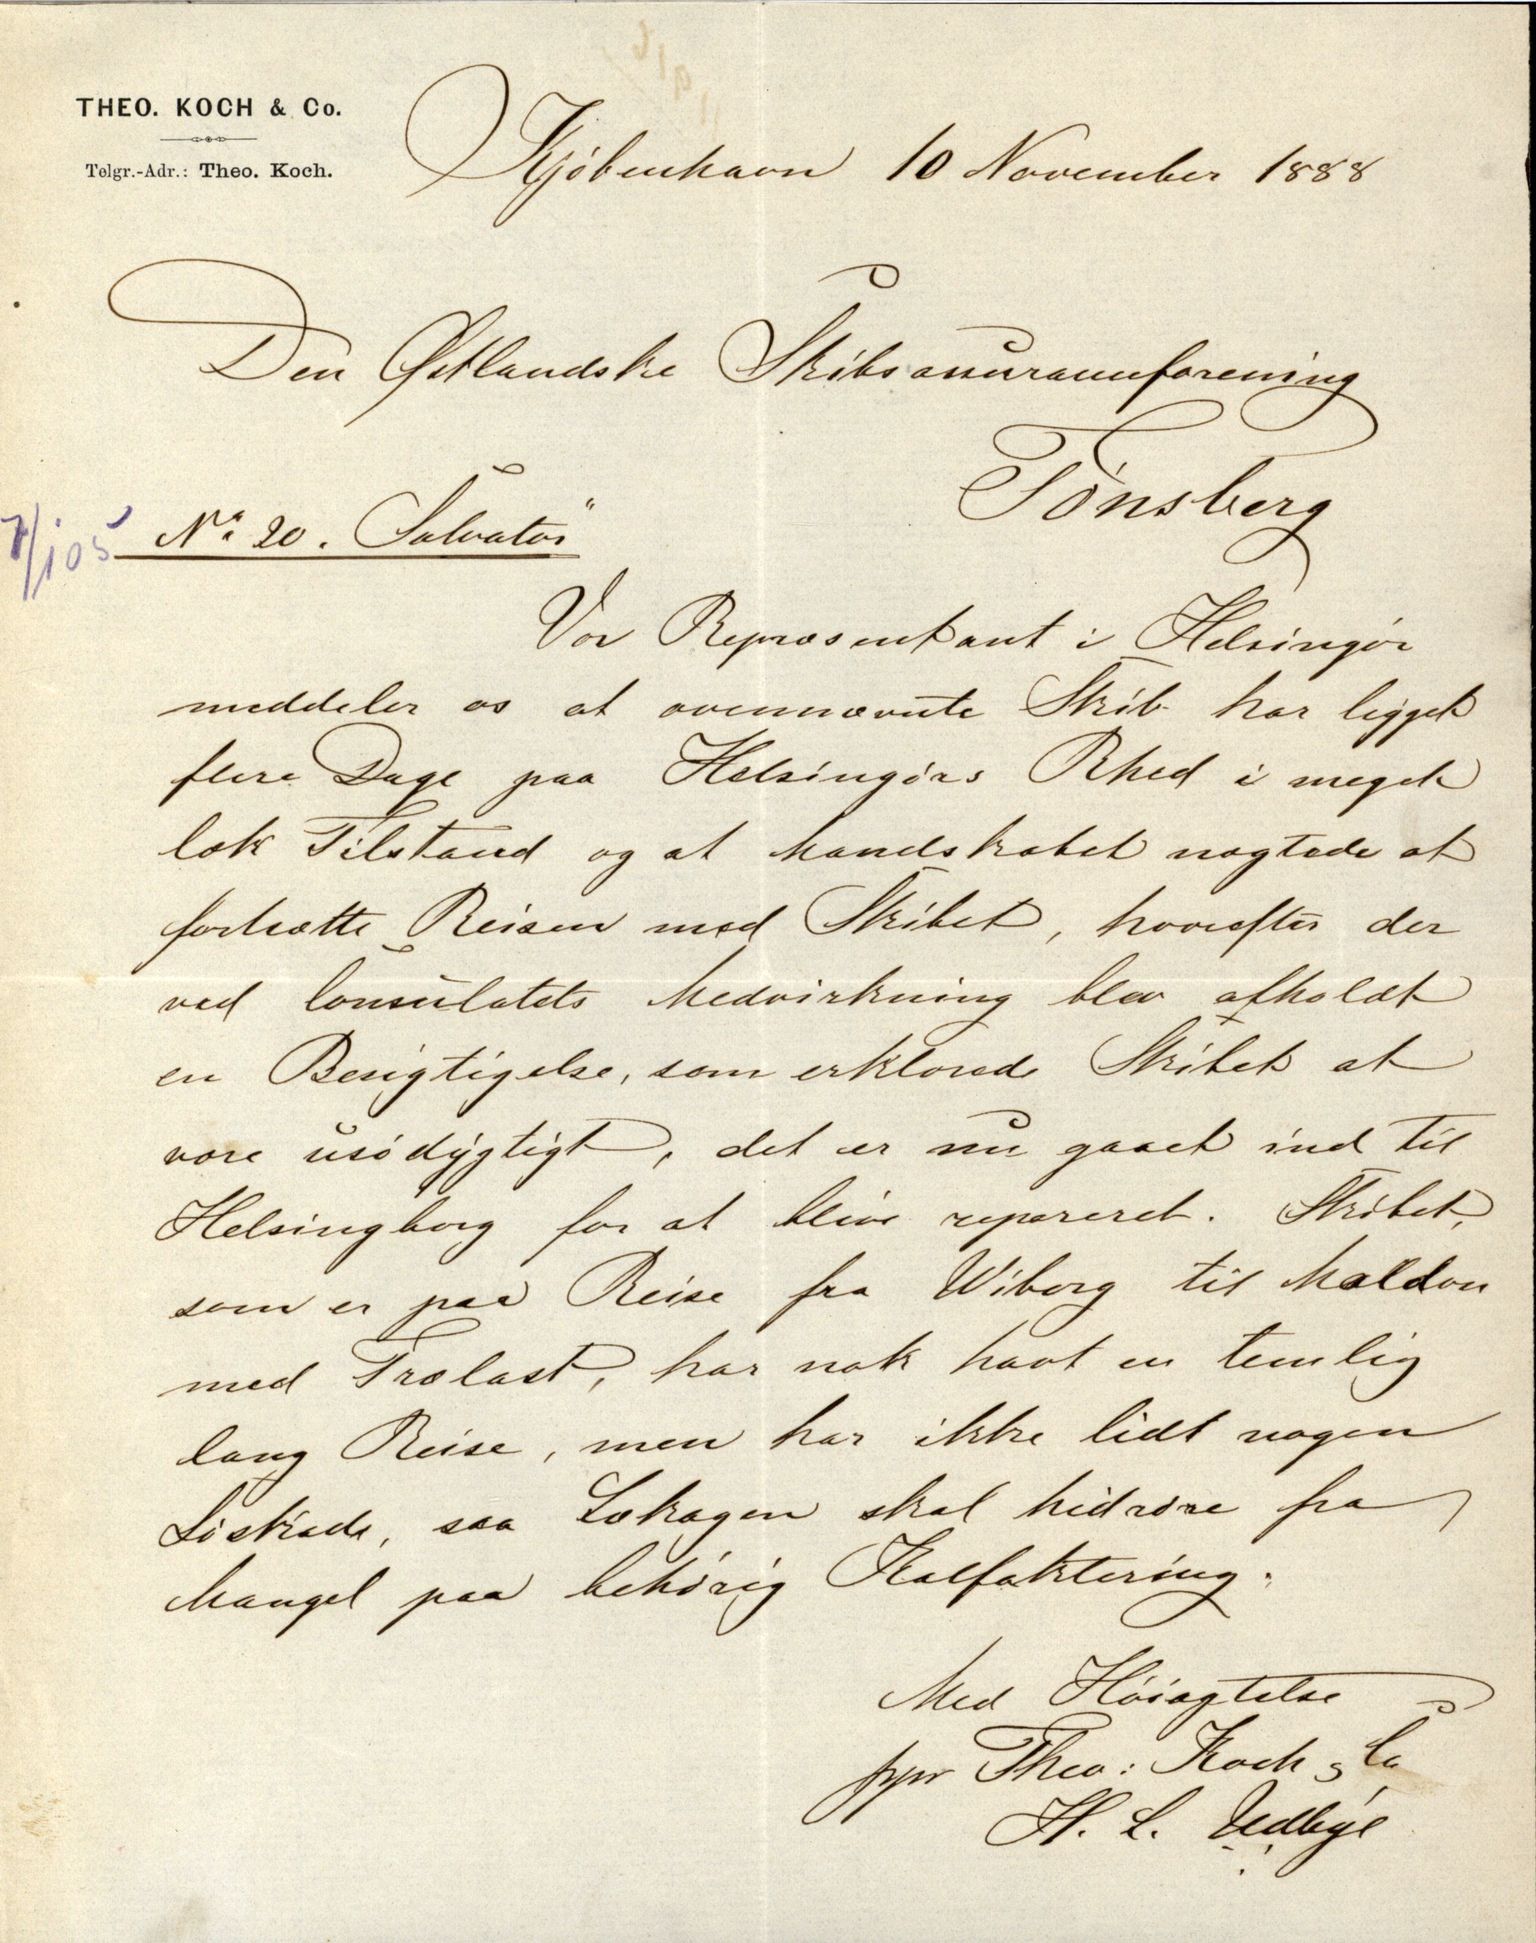 THEO. KOCH & Co.
Telgr.-Adr.: Theo. Koch.
Kjøbenhavn 10 November 1888
Den Østlandske Skibsassuranceforening
Tønsberg
7/105
No 20. Salvator"
Vor Repræsentant i Helsingør
meddeler os at ovennævnte Skib har ligget
flere Dage paa Helsingørs Rhed i meget
læk Tilstand og at Mandskabet nægtede at
fortsætte Reisen med Skibet, hvorefter der
ved Consulatets Medvirkning blev afholdt
en Besigtigelse, som erklærede Skibet at
være usødygtigt, det er nu gaaet ind til
Helsingborg for at blive repareret. Skibet,
som er paa Reise fra Wiborg til Maldon
med Trælast, har nok havt en temlig
lang Reise, men har ikke lidt nogen
Søskade, saa Lækagen skal hidrøre fra
Mangel paa behørig Kalfaktering.
Med Høiagtelse
ppr Theo: Koch & Co
H. L.